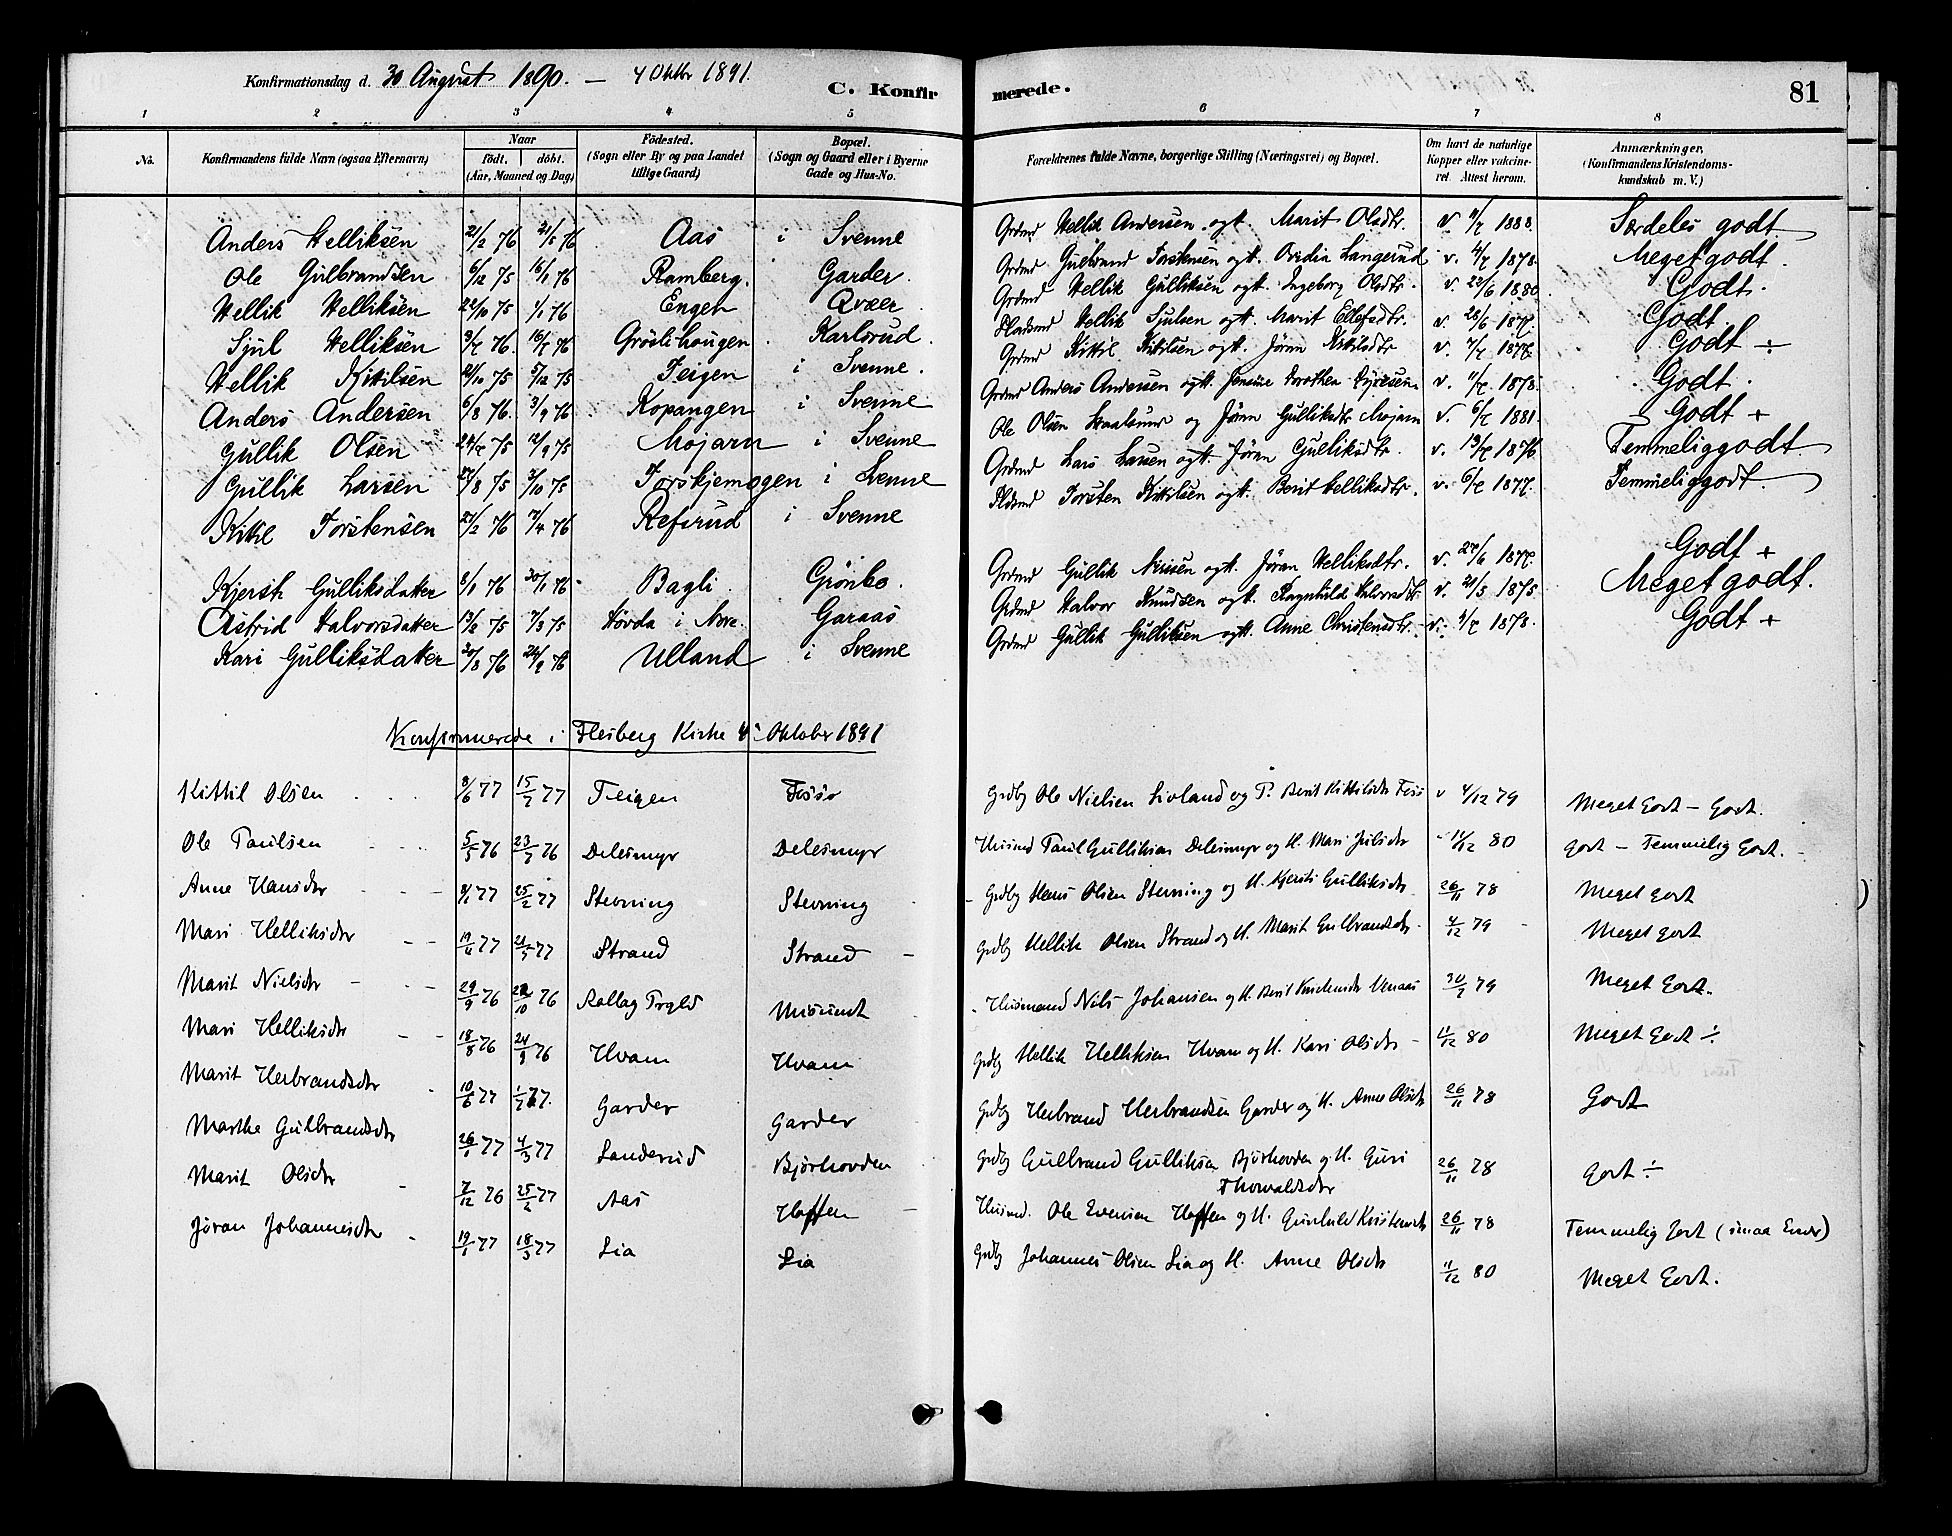 Konfirmationsdag d. 30 August 1890. — 4 Oktbr 1891.
C. Konfirmerede.
81
1 2 3 4 5 6 7 8
No.
Konfirmandens fulde Navn (ogsaa Efternavn)
Naar
födt. döbt.
(Aar, Maaned og Dag)
Födested.
(Sogn eller By og paa Landet tillige Gaard)
Bopæl.
(Sogn og Gaard eller i Byerne Gade og Hus-No.
Forældrenes fulde Navne, borgerlige Stilling (Næringsvei) og Bopæl.
Om havt de naturlige Kopper eller vakcineret. Attest herom.
Anmærkninger,
(Konfirmandens Kristendomskundskab m. V.)
Anders Helliksen 21/2 76 21/5 76 Aas i Svenne Grdmd Hellik Andersen og H. Marit Olsdtr. v. 11/7 1888. Særdeles godt
Ole Gulbrandsen 6/12 75 16/1 76 Ramberg. Garder. Grdmd Gulbrand Torstensen og H. Ovedia Langerud v. 4/7 1878. Meget godt.
Hellik Helliksen 22/10 75 1/1 76 Engen Qvær. Grdmd Hellik Gulliksen og H. Ingeborg Olsdtr. v. 22/6 1880. Godt.
Sjul Helliksen 3/7 76. 16/7 76 Gröslihaugen Karlsrud. Pladsmd Hellik Sjulsen og H. Marit Ellefsdtr. v. 28/6 1877. Godt
Hellik Kittilsen 21/10 75 5/12 75 Teigen i Svenne. Grdmd Kittil Kittilsen og H. Jöran Kittilsdtr v. 7/7 1877. Godt ÷
Anders Andersen 6/8 76. 3/9 76 Kopangen i Svenne Grdmd Anders Andersen og H. Jensine Dorothea Syvesen v. 11/7 1878. Godt.
Gullik Olsen 24/7 75 12/9 75 Mojarn i Svenne Ole Olsen og Jöran Gulliksdtr Mojarn v. 6/7 1881. Godt +
Gullik Larsen 27/8 75 3/10 75 Torskjemogen i Svenne Grdmd Lars Larsen og H. Jöran Gulliksdtr. v. 13/7 1876 Temmeliggodt
Kittil Torstensen 27/2 76 7/4 76 Refsrud i Svenne Pldsmd Torsten Kittilsen og H. Berit Helliksdtr. v. 6/7 1877. Temmeliggodt.
Kjersti Gulliksdatter 8/1 76 30/1 76 Bagli Grönbo. Grdmd Gullik Nirisen og H. Jöran Helliksdtr. v. 27/6 1877. Godt +
Astrid Halvorsdatter 13/2 75 7/3 75 Hövda i Nore. Garaas Grdmd Halvor Knudsen og H. Ragnhild Halvorsdtr v. 21/5 1875. Meget godt.
Kari Gulliksdatter 20/8 76 24/9 76 Ulland i Svenne Grdmd Gullik Gulliksen og H. Anne Christensdtr. v. 4/7 1878. Godt +
Konfirmerede i Flesberg Kirke 4de Oktober 1891
Kittil Olsen 8/6 77 15/7 77 Teigen Fossö Grdbg Ole Nielsen Livland og P. Berit Kittilsdtr v 4/12 79 Meget Godt - Godt.
Ole Paulsen 5/5 76 23/7 76 Delesmyr Delesmyr Husmd Paul Gulliksen Delesmyr og H. Mari Julsdtr 11/12 80 Godt - Temmelig Godt.
Anne Hansdtr 8/1 77 25/2 77 Stevning Stevning Grdbg Hans Olsen Stevning og H. Kjersti Gulliksdtr 26/11 78 Meget Godt
Mari Helliksdtr 19/4 77 21/5 77 Strand Strand Grdbg Hellik Olsen Strand og H. Marit Gulbrandsdtr 4/12 79 Meget Godt
Marit Nielsdtr 29/9 76 22/10 76 Rollag Prgld Misundt Husmand Nils Johansen og H. Berit 30/7 79 Meget Godt.
Mari Helliksdtr 18/8 76 24/9 76 Hvam Hvam Grdbg Hellik Helliksen Hvam og H. Kari Olsdtr 11/12 80 Meget Godt ÷
Marit Herbrandsdtr 10/6 77 1/7 77. Garder Garder Grdbg Herbrand Herbrandsen Garder og H. Anne Olsdtr 26/11 78 Godt
Marthe Gulbrandsdtr 26/1 77 4/3 77 Landerud Bjørhovden Grdbg Gulbrand Gulliksen Bjørhovden og H. Guri Thorvaldsdtr 26/11 78 Godt ÷
Marit Olsdtr 7/12 76 25/2 77 Aas Haffen Husmd. Ole Evensen Haffen og H. Gunhild Kristensdtr 26/11 78 Temmelig Godt (smaa Evner)
Jøran Johannesdtr 19/1 77 18/3 77 Lia Lia Grdbg Johannes Olsen Lia og H. Anne Olsdtr 11/12 80 Meget Godt.